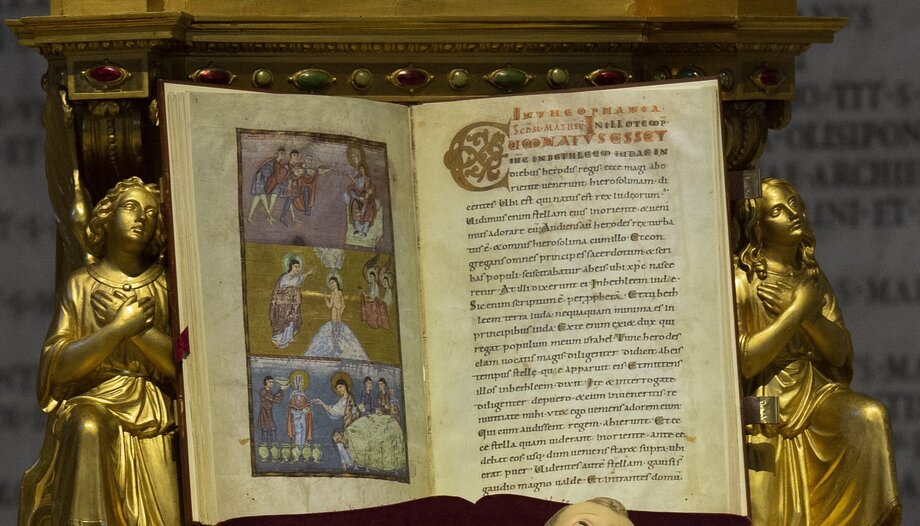 IN THEOPHANIA
SCDM MATHEU IN ILLO TEMP
CUM NATUS ESSET
IHC IN BETHLEEM IUDAE IN
diebus herodis regis· ecce magi abo
riente uenerunt hierosolimam di
centes Ubi est qui natus est rex iudeorum·
Uidimus enim stellam eius inoriente· & ueni
mus adorare eu; Audiens aut herodes rex turba
tus ÷ & omnis hierosolima cum illo· Et con
gregans omnes principes sacerdotum & scri
bas populi· sciscitabatur abeis· ubi xpc nasce
retur· At illi dixerunt ei Inbethleem iude·
Sic enim scriptum ÷ per pphetā· Et tu beth
leem terra iuda· nequaquam minima es in
principibus iuda· Ex te enim exiet dux qui
regat populum meum israhel· Tunc herodes
clam uocatis magis· diligenter didicit abeis
tempus stellę· quę apparuit eis· Et mittens
illos inbethleem· dixit· Ite & interrogate
diligenter depuero· & cum inueneritis· re
nuntiate mihi· ut & ego ueniens adorem eum·
Qui cum audissent regem· abierunt· Et ec
ce stella quam uiderant inoriente· ante ce
debat eos· usq; dum ueniens staret supra· ubi
erat puer· Uidentes autē stellam· gauisi s
gaudio magno ualde· Et intrantes domū
TIT S